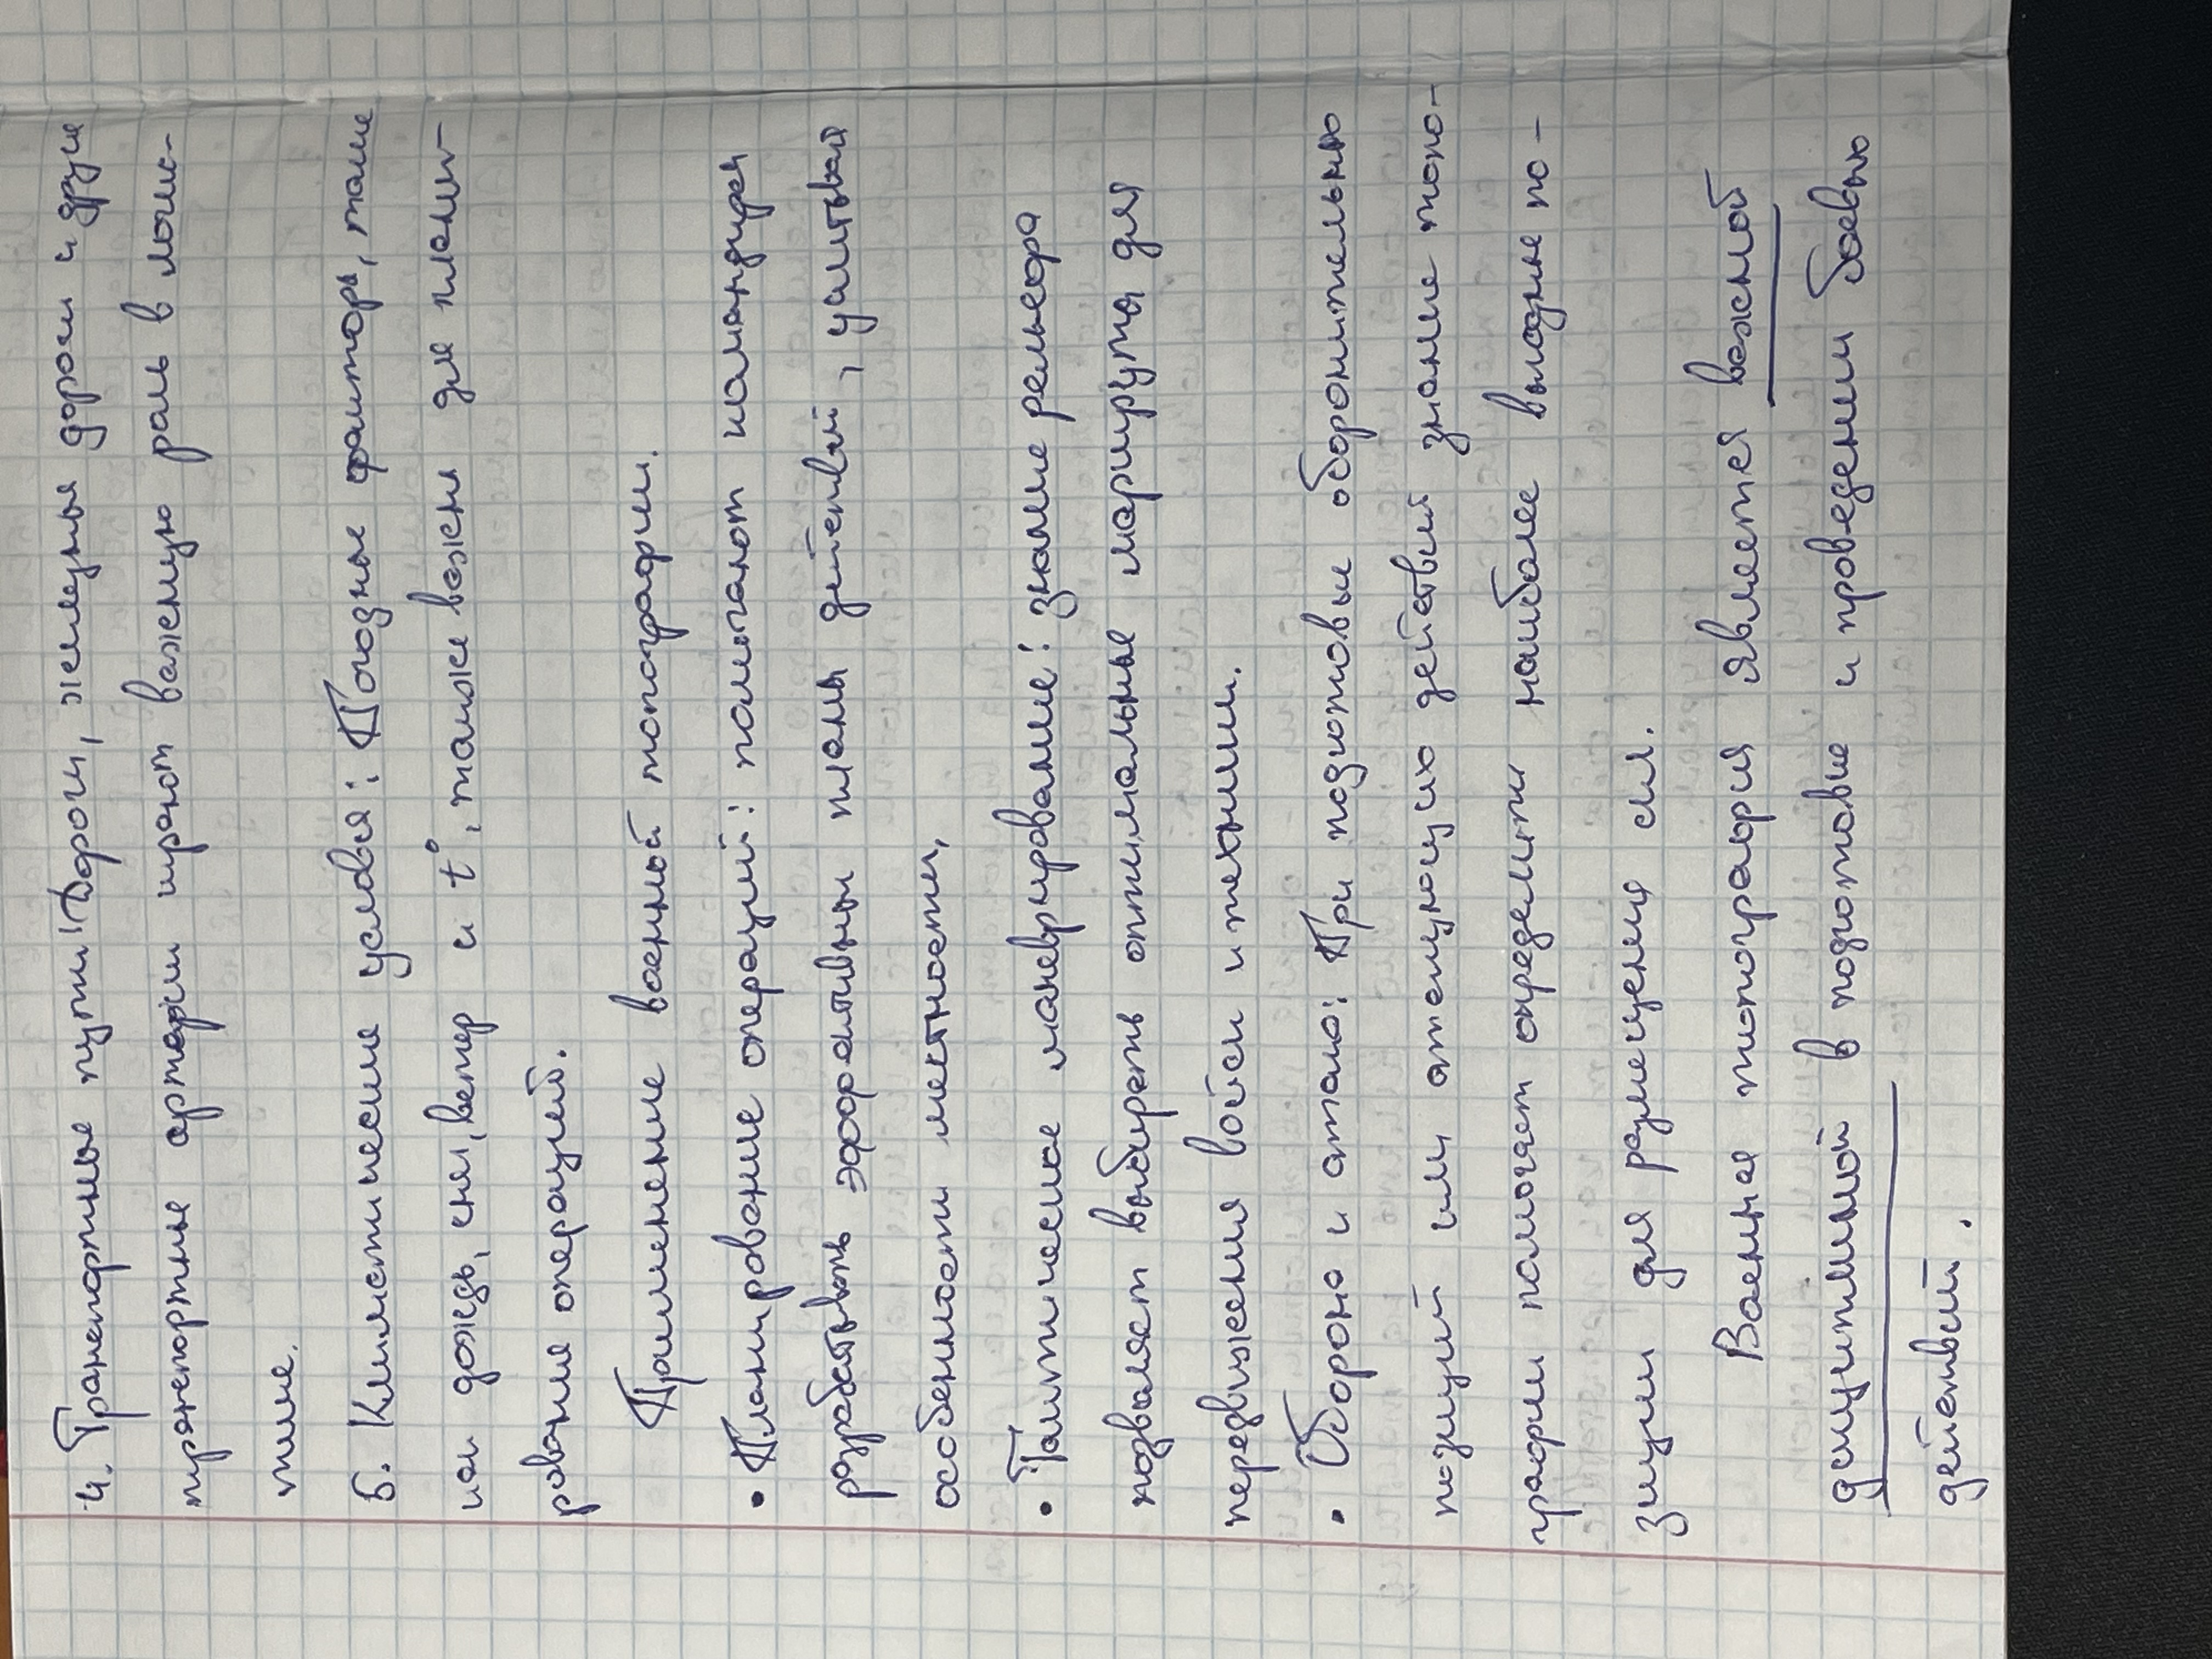 4. Транспортные пути: Дороги, железные дороги и други
транспортные артерии играют важную роль в логис-
тике.
5. Климатические условия: Погодные факторы, такие
как дождь, снег, ветер и t°, также важны для плани-
рование операций.
Применение военной топографии.
• Планирование операций: помогают командирам
разрабатывать эффективные планы действий, учитывая
особенности местности,
• Тактическое маневрирование: знание рельефа
позволяет выбирать оптимальные маршруты для
передвижения войск и техники.
• Оборона и атака: При подготовке оборонительных
позиций или атакующих действий знание топо-
графии помогает определить наиболее выгодные по-
зиции для размещение сил.
Военная топография является важной
дисциплиной в подготовке и проведении боевых
действий.